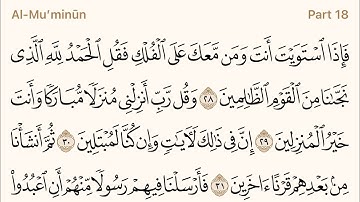 Al-Mu'minūn Part 18
فَإِذَا ٱسْتَوَيْتَ أَنتَ وَمَن مَّعَكَ عَلَى ٱلْفُلْكِ فَقُلِ ٱلْحَمْدُ لِلَّهِ ٱلَّذِى
نَجَّىٰنَا مِنَ ٱلْقَوْمِ ٱلظَّـٰلِمِينَ ٢٨ وَقُل رَّبِّ أَنزِلْنِى مُنزَلًا مُّبَارَكًا وَأَنتَ
خَيْرُ ٱلْمُنزِلِينَ ٢٩ إِنَّ فِى ذَٰلِكَ لَـَٔايَـٰتٍ وَإِن كُنَّا لَمُبْتَلِينَ ٣٠ ثُمَّ أَنشَأْنَا
مِنۢ بَعْدِهِمْ قَرْنًا ءَاخَرِينَ ٣١ فَأَرْسَلْنَا فِيهِمْ رَسُولًا مِّنْهُمْ أَنِ ٱعْبُدُوا۟